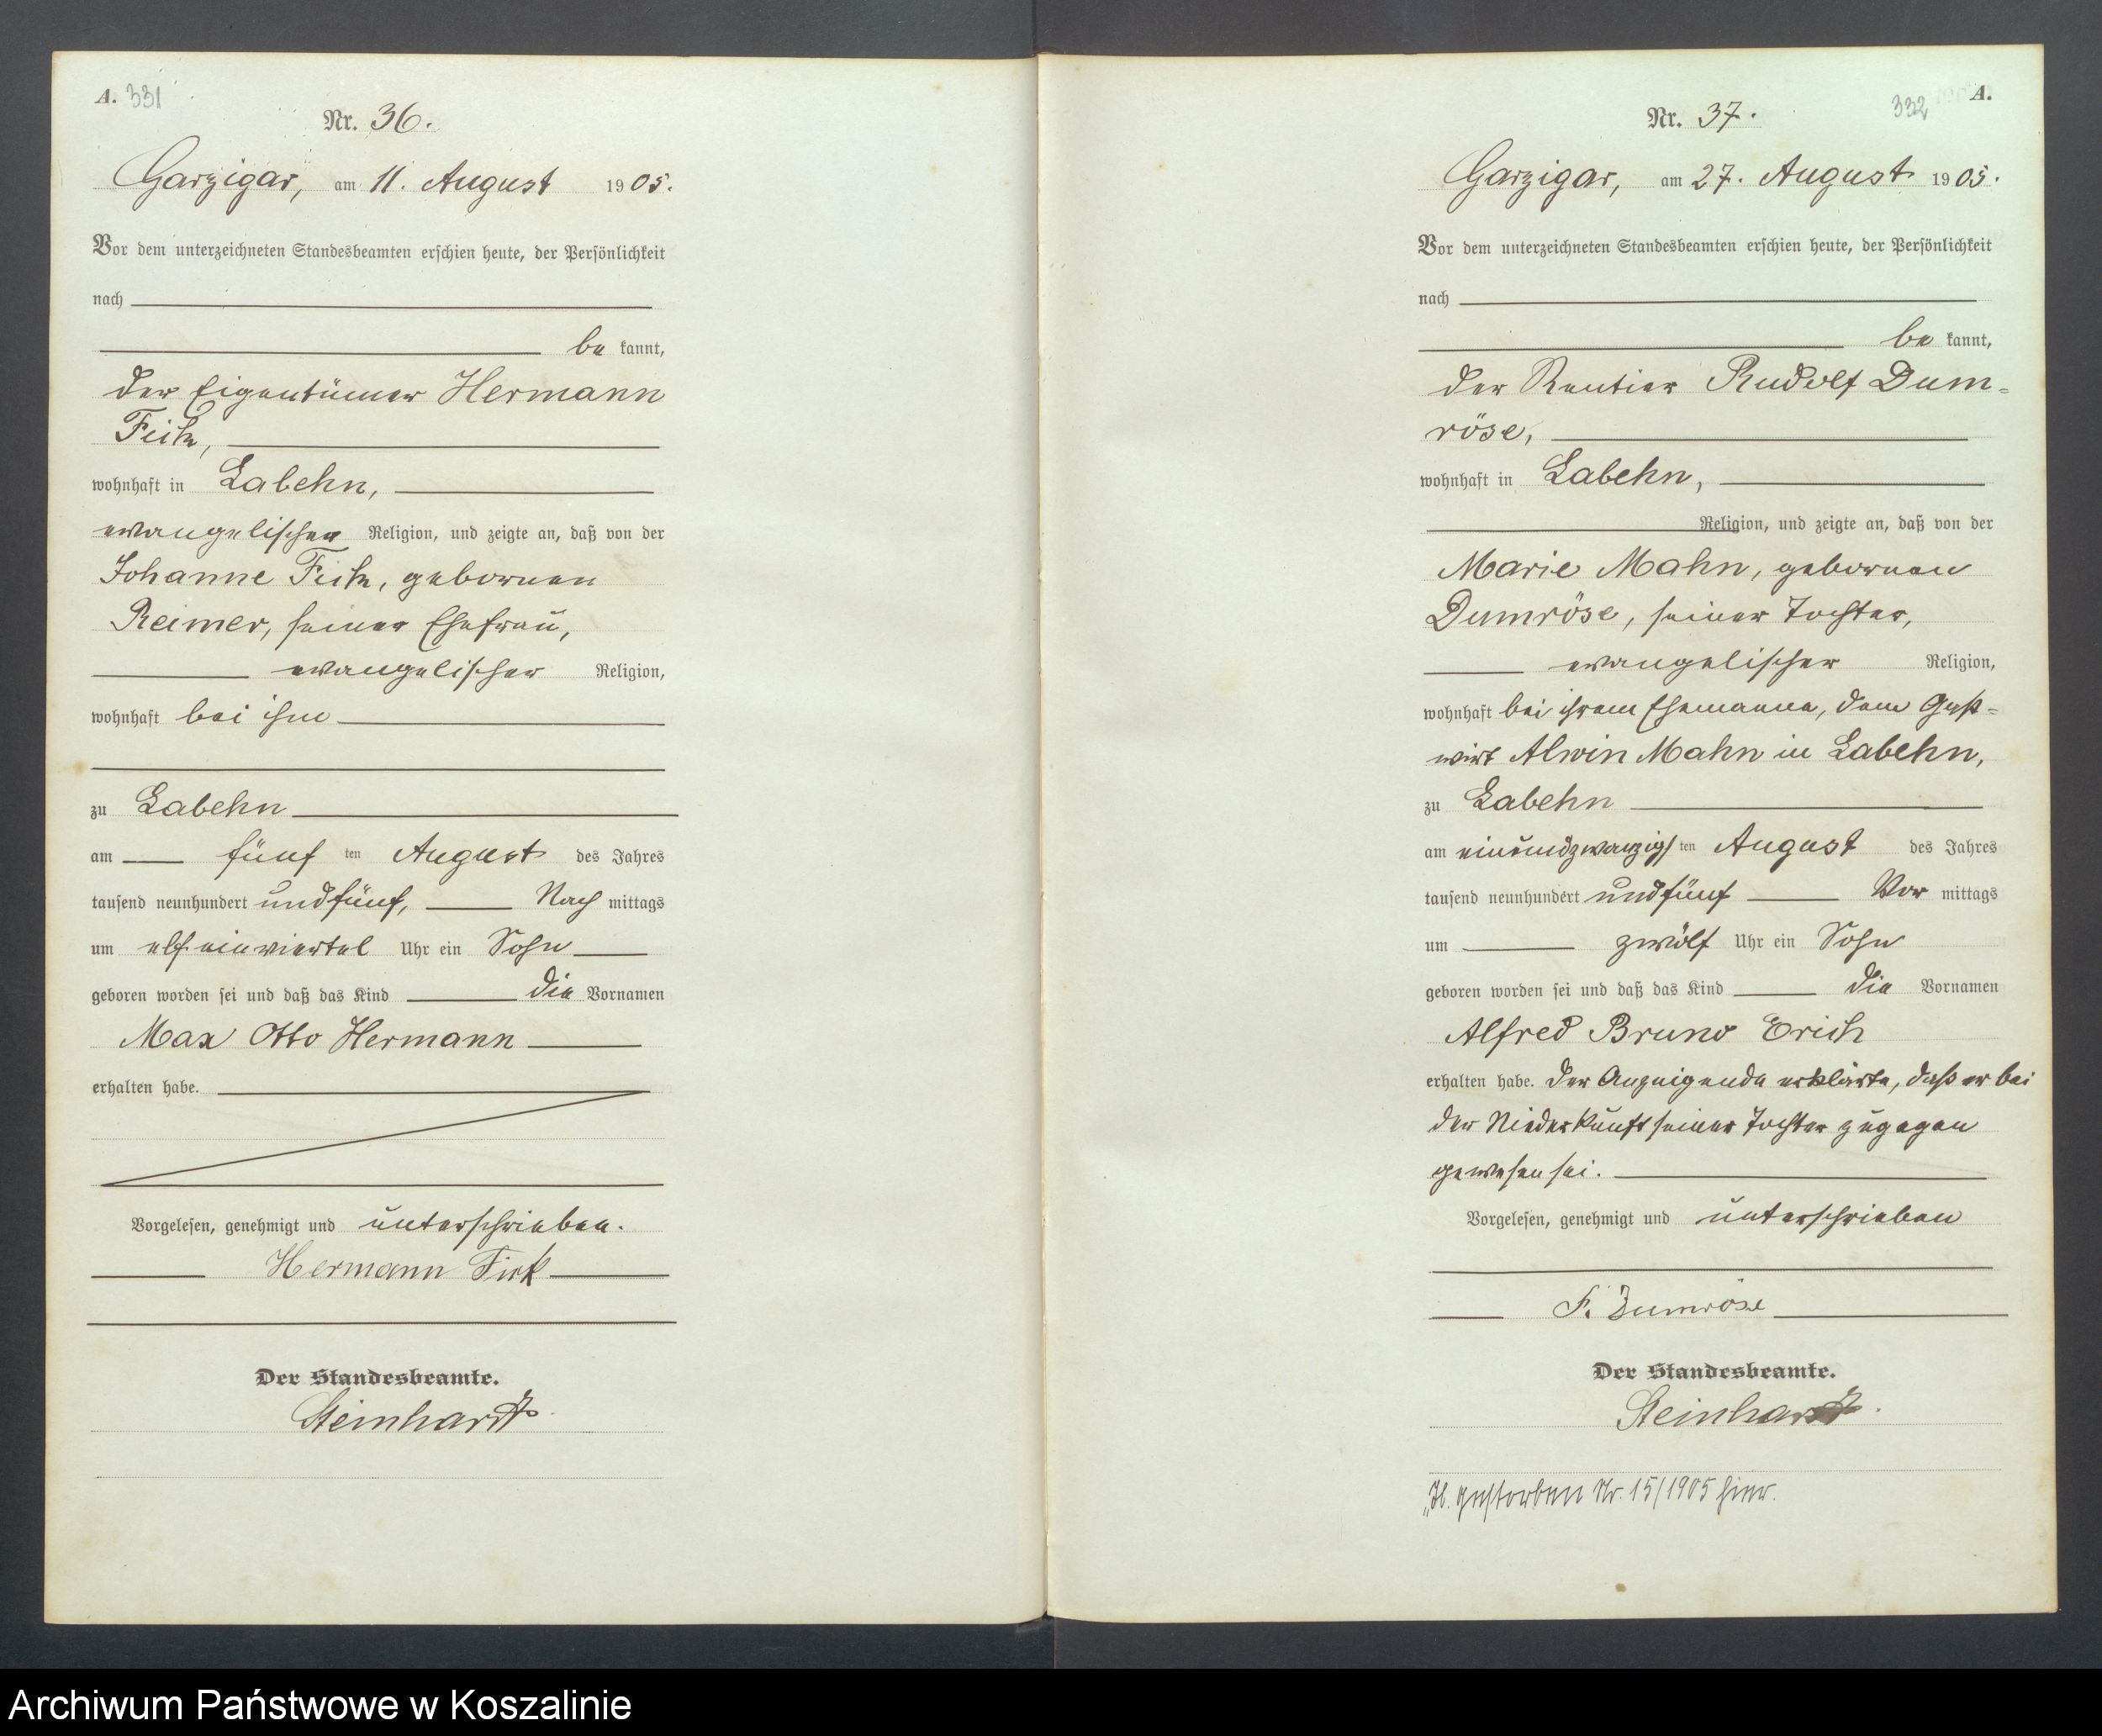 A. 331
Nr. 36.
Garzigar, am 11. August 1905.
Vor dem unterzeichneten Standesbeamten erschien heute, der Persönlichkeit
nach
be kannt,
der Eigentümer Hermann
wohnhaft in Labehn,
evangelischer Religion, und zeigte an, daß von der
Johanne geborenen
Reimer, seiner Ehefrau,
evangelischer Religion,
wohnhaft bei ihm
zu Labehn
am fünf ten August des Jahres
tausend neunhundert und fünf, Nach mittags
um elf einviertel Uhr ein Sohn
geboren worden sei und daß das Kind die Vornamen
Max Otto Hermann
erhalten habe.
Vorgelesen, genehmigt und unterschrieben.
Hermann
Der Standesbeamte.
Steinhardt
332 A.
Nr. 37.
Garzigar, am 27. August 1905.
Vor dem unterzeichneten Standesbeamten erschien heute, der Persönlichkeit
nach
be kannt,
der Rentier Rudolf Dum-
röse,
wohnhaft in Labehn,
Religion, und zeigte an, daß von der
Marie Mahn, geborenen
Dumröse, seiner Tochter,
evangelischer Religion,
wohnhaft bei ihrem Ehemanne, dem Gast-
wirt Alwin Mahn in Labehn,
zu Labehn
am einundzwanzigs ten August des Jahres
tausend neunhundert und fünf Vor mittags
um zwölf Uhr ein Sohn
geboren worden sei und daß das Kind die Vornamen
Alfred Bruno Erich
erhalten habe. Der Anzeigende erklärte, daß er bei
der Niederkunft seiner Tochter zugegen
gewesen sei.
Vorgelesen, genehmigt und unterschrieben
Dumröse
Der Standesbeamte.
Steinhardt.
gestorben Nr. 15/1905 hier.
Archiwum Państwowe w Koszalinie